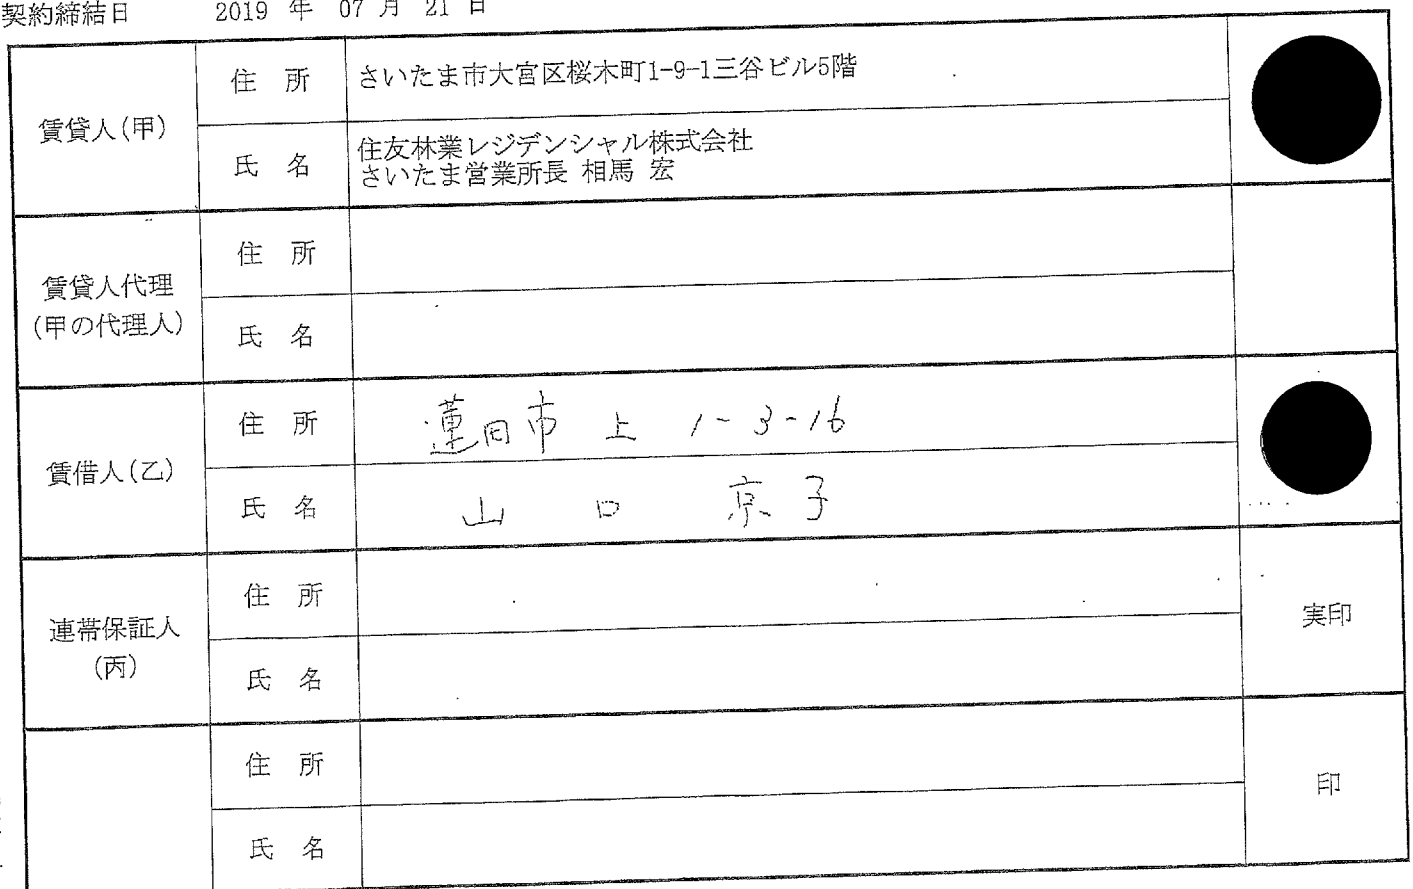 契約締結日 2019 年 07 月 21 日
賃貸人(甲)
住 所 さいたま市大宮区桜木町1-9-1三谷ビル5階
氏 名 住友林業レジデンシャル株式会社
さいたま営業所長 相馬 宏
賃貸人代理
(甲の代理人)
住 所
氏 名
賃借人(乙)
住 所 蓮田市 上 1-3-16
氏 名 山 口 京 子
連帯保証人
(丙)
住 所
氏 名
実印
住 所
氏 名
印